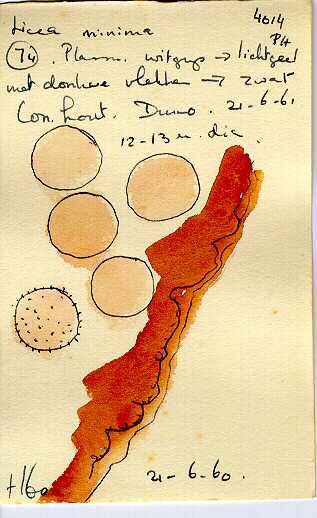 Licea minima
4014
P4
74. Plasm. witgrijs → lichtgeel
met donkere vlekken → zwart
Con. hout. Dunno. 21-6-61
12-13 u. dia.
21-6-60.